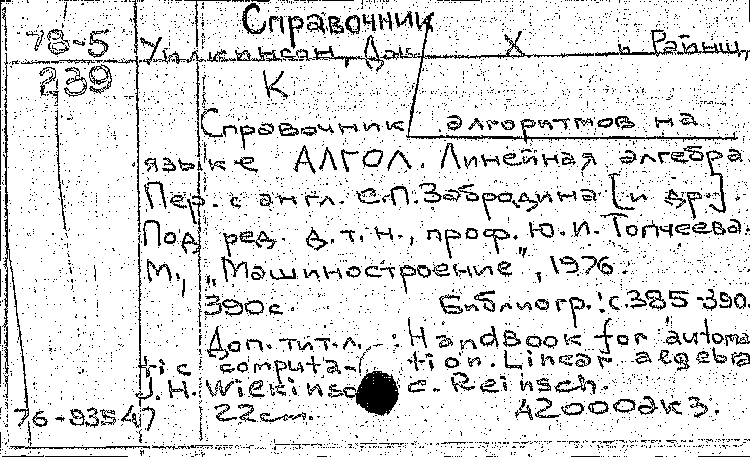 Справочник
78-5
Уилкинсон, Дж. Х и Райнш,
239 К
Справочник алгоритмов на
языке АЛГОЛ. Линейная алгебра
Пер. с англ. С.П. Забродина [и др].
Под ред. д.т.н., проф. Ю.И. Топчеева.
М., „Машиностроение", 1976.
390с. Библиогр.: с.385-390.
Доп. тит. л.: Handbook for automa
tic computa- tion. Linear algebra
J.H. Wilkinso C. Reinsch.
76-83547 22см. А20002кз.